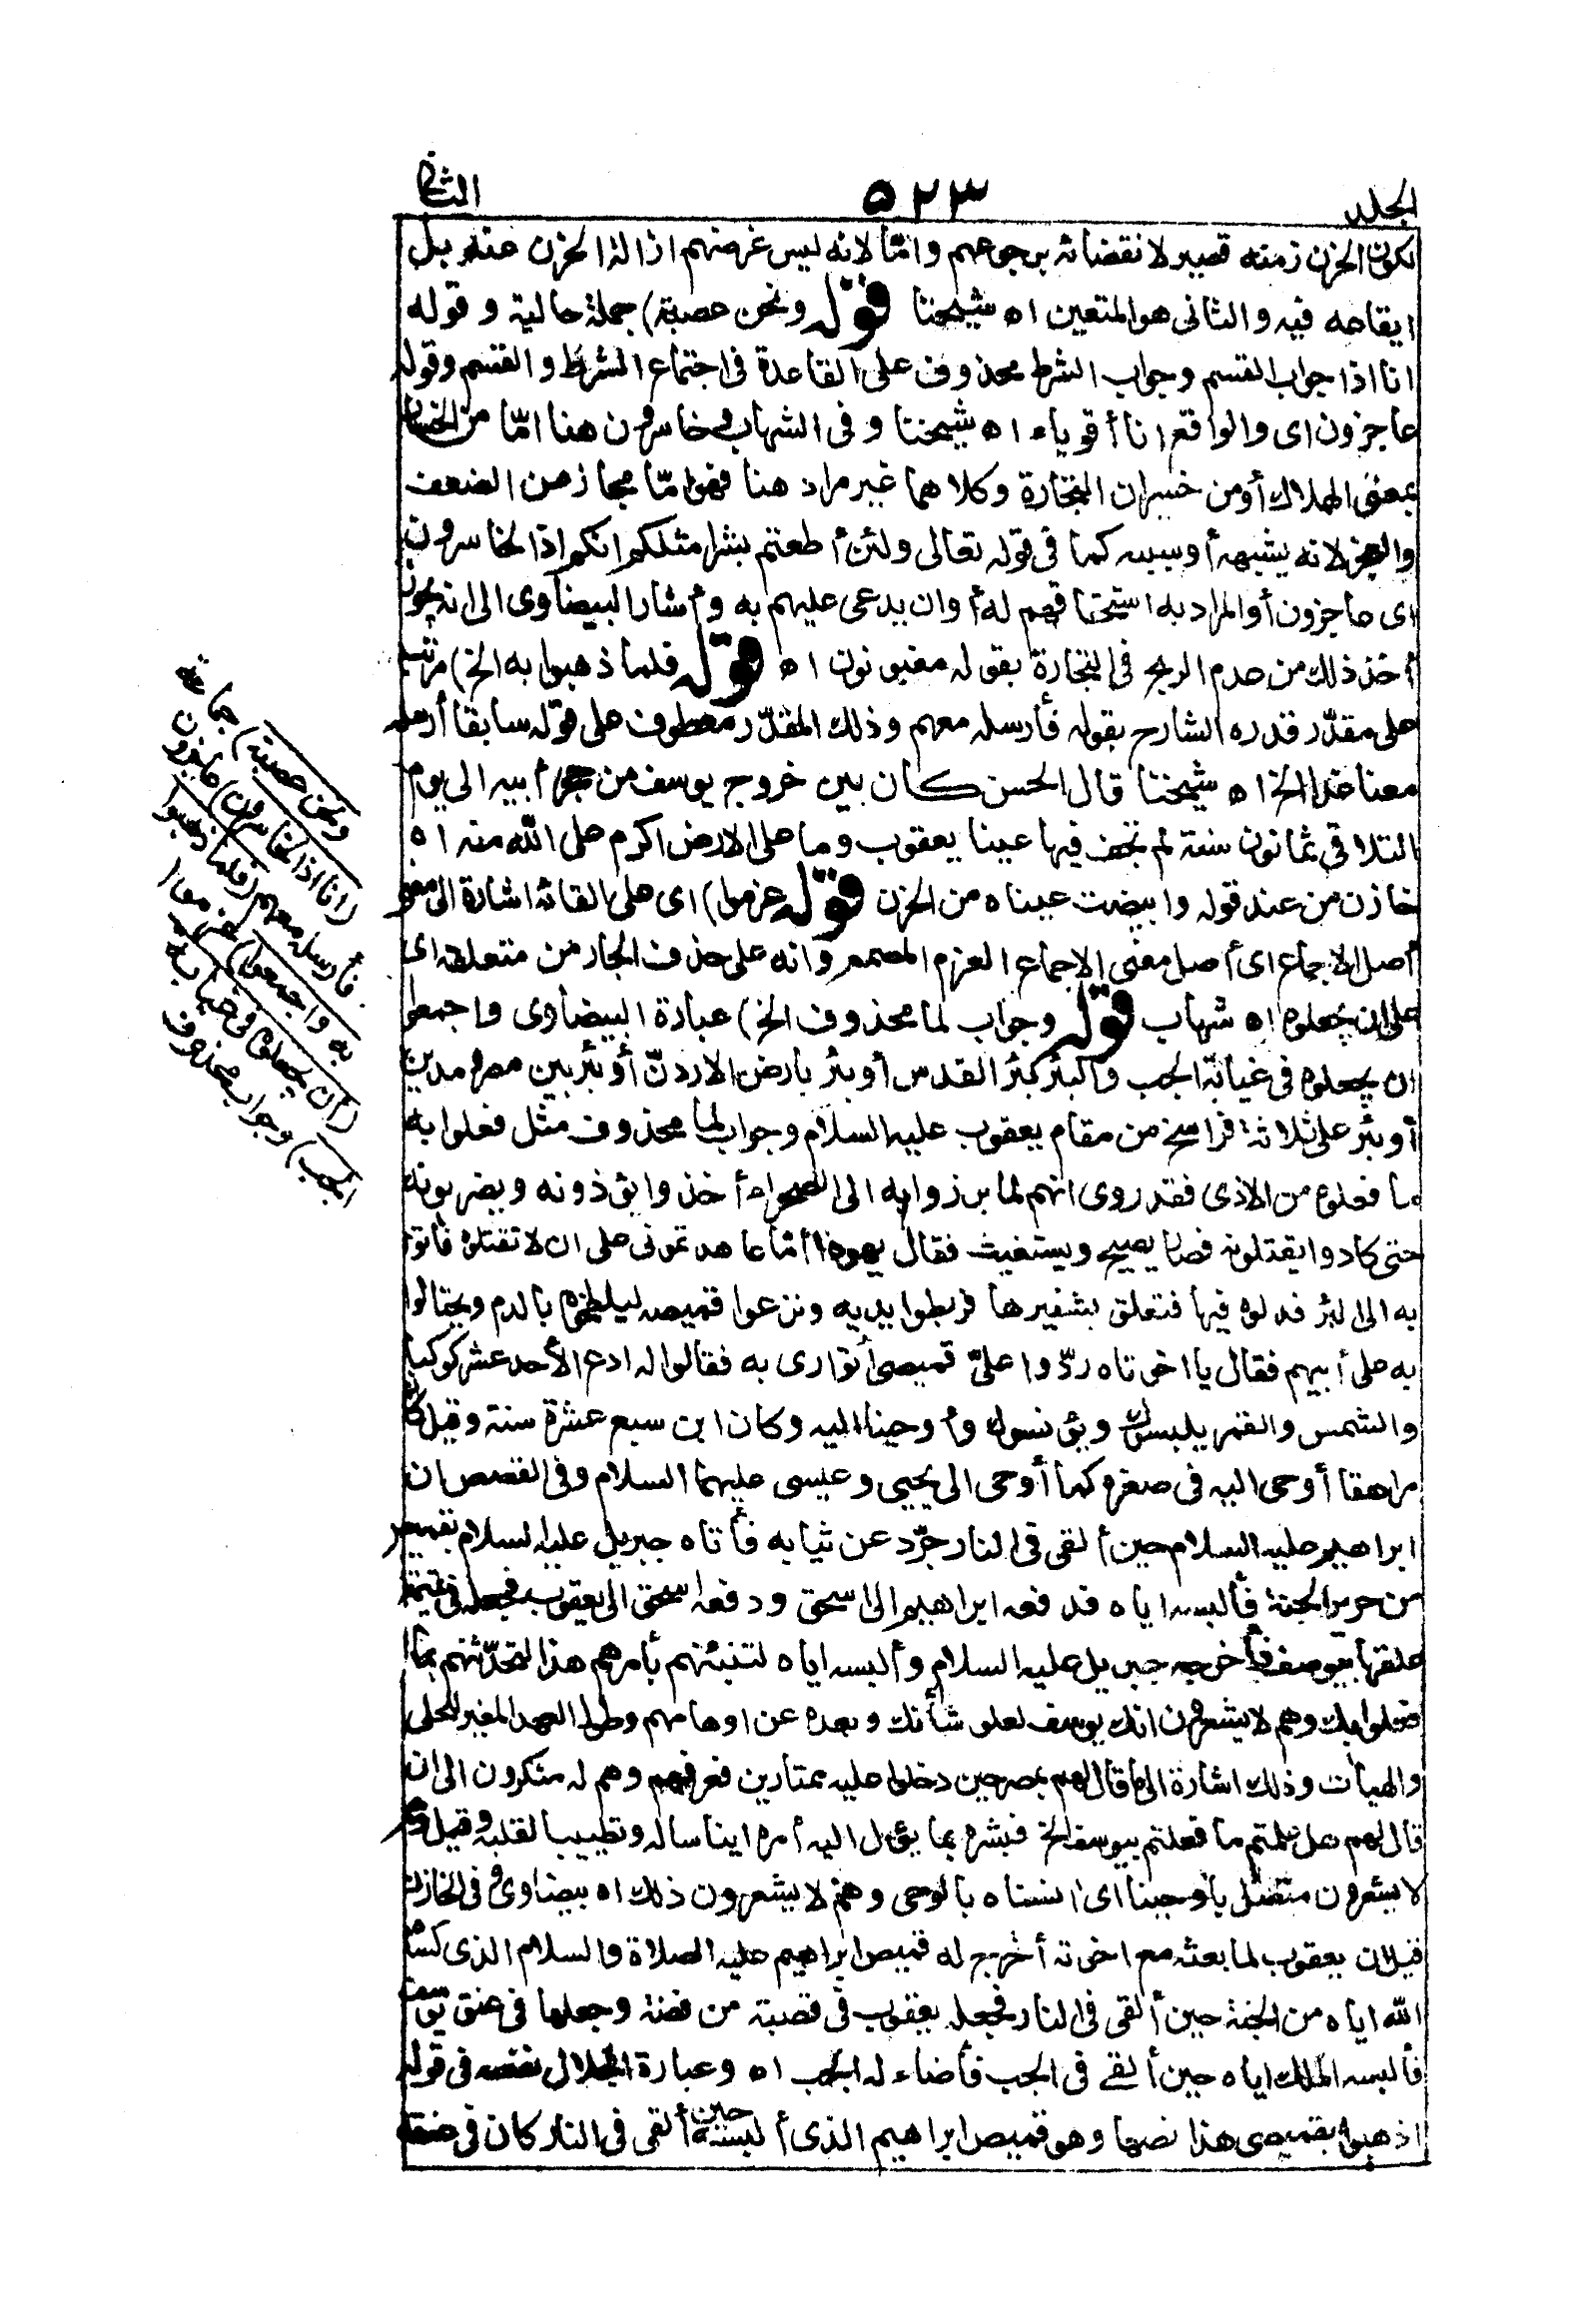 الجلد ٥٢٣ الثانى
لكون الحزن زمنه قصير لانقضائه برجوعهم وامّا لانه ليس غرضهم ازالة الحزن عنه بل
ايقاعه فيه والثانى هو المتعين اه شيخنا قوله ونحن عصبة) جملة حالية وقوله
انا اذا جواب القسم وجواب الشرط محذوف على القاعدة فى اجتماع الشرط والقسم وقوله
عاجزون اى والواقع انا أقوياء اه شيخنا وفى الشهاب وخاسرون هنا امّا من الخسار
بمعنى الهلاك أو من خسران التجارة وكلاهما غير مراد هنا فهو امّا مجاز من الضعف
والعجز لانه يشبهه أو سببه كما فى قوله تعالى ولئن أطعتم بشرا مثلكم انكم اذا لخاسرون
اى عاجزون أو المراد به استحقاقهم له أو ان يدعى عليهم به وأشار البيضاوى الى انه يجوز
أخذ ذلك من عدم الربح فى التجارة بقوله مغبونون اه قوله فلما ذهبوا به الخ) مرتب
على مقدّر قدره الشارح بقوله فأرسله معهم وذلك المقدّر معطوف على قوله سابقا أرسله
معنا غدا الخ اه شيخنا قال الحسن كان بين خروج يوسف من حجر أبيه الى يوم
التلاقى ثمانون سنة لم تجف فيها عينا يعقوب وما على الارض اكرم على الله منه اه
خازن من عند قوله وابيضت عيناه من الحزن قوله عزموا) اى على القائه اشارة الى معنى
أصل الاجماع اى أصل معنى الاجماع العزم المصمم وانه على حذف الجار من متعلقه اى
على ان يجعلوه اه شهاب قوله وجواب لما محذوف الخ) عبارة البيضاوى وأجمعوا
ان يجعلوه فى غيابة الجب والبئر بئر القدس أو بئر بارض الاردنّ أو بئر بين مصر ومدين
أو بئر على ثلاثة فراسخ من مقام يعقوب عليه السلام وجواب لما محذوف مثل فعلوا به
ما فعلوه من الاذى فقد روى انهم لما برزوا به الى الصحراء أخذوا يؤذونه ويضربونه
حتى كادوا يقتلونه فصار يصيح ويستغيث فقال يهوذا أمّا عاهدتمونى على ان لا تقتلوه فأتوا
به الى البئر فدلوه فيها فتعلق بشفيرها فربطوا يديه ونزعوا قميصه ليلطخوه بالدم ويحتالوا
به على أبيهم فقال يا اخوتاه ردّوا علىّ قميصى أتوارى به فقالوا له ادع الأحد عشر كوكبا
والشمس والقمر يلبسوك ويؤنسوك وأوحينا اليه وكان ابن سبع عشرة سنة وقيل كان
مراهقا أوحى اليه فى صغره كما أوحى الى يحيى وعيسى عليهما السلام وفى القصص ان
ابراهيم عليه السلام حين ألقى فى النار جرّد عن ثيابه فأتاه جبريل عليه السلام بقميص
من حرير الجنة فألبسه اياه فدفعه ابراهيم الى اسحق ودفعه اسحق الى يعقوب فجعله فى تميمة
علقها بيوسف فأخرجه جبريل عليه السلام وألبسه اياه لتنبئنهم بأمرهم هذا لتحدّثنهم بما
فعلوا بك وهم لا يشعرون انك يوسف لعلو شأنك وبعده عن اوهامهم وطول العهد المغير للحلى
والهيأت وذلك اشارة الى ما قال لهم بمصر حين دخلوا عليه ممتارين فعرفهم وهم له منكرون الى ان
قال لهم هل علمتم ما فعلتم بيوسف الخ فبشره بما يؤل اليه أمره ايناسا له وتطييبا لقلبه وقيل وهم
لا يشعرون متصل بأوحينا اى انسناه بالوحى وهم لا يشعرون ذلك اه بيضاوى وفى الخازن
قيل ان يعقوب لما بعثه مع اخوته أخرج له قميص ابراهيم عليه الصلاة والسلام الذى كساه
الله اياه من الجنة حين ألقى فى النار فجعله يعقوب فى قصبة من فضة وجعلها فى عنق يوسف
فألبسه الملك اياه حين ألقى فى الجب فأضاء له الجب اه وعبارة الجلال نفسه فى قوله
اذهبوا بقميصى هذا نصها وهو قميص ابراهيم الذى ألبسه حين ألقى فى النار كان فى عنقه
ونحن عصبة) جماعة
(انا اذا لخاسرون) عاجزون
فأرسله معهم (فلما ذهبوا
به وأجمعوا) عزموا
(أن يجعلوه فى غيابة
الجب) وجواب لما محذوف